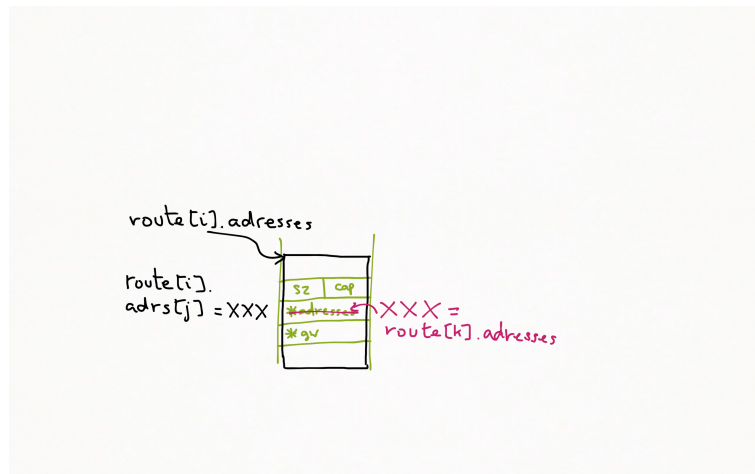 route[i].adresses
route[i].
adrs[j] = XXX
sz cap
*adresses
*gw
XXX =
route[k].adresses